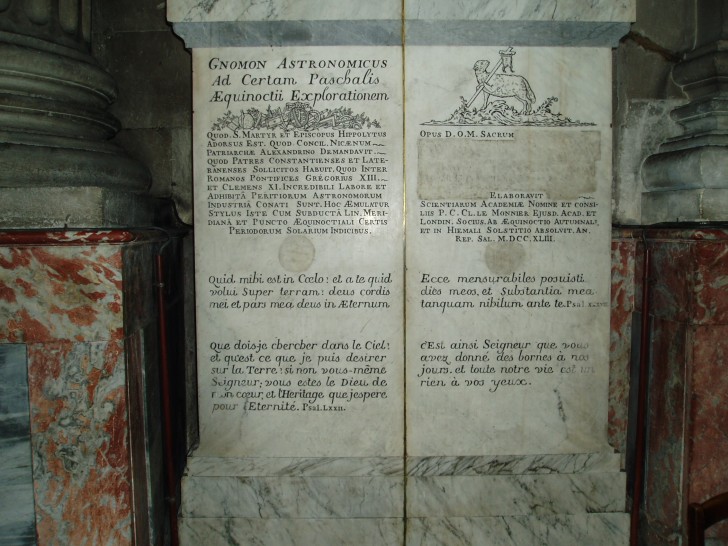 GNOMON ASTRONOMICUS
Ad Certam Paschalis
Æquinoctii Explorationem
QUOD. S. MARTYR ET EPISCOPUS HIPPOLYTUS
ADORSUS EST. QUOD CONCIL. NICÆNUM
PATRIARCHÆ ALEXANDRINO DEMANDAVIT.
QUOD PATRES CONSTANTIENSES ET LATE-
RANENSES SOLLICITOS HABUIT. QUOD INTER
ROMANOS PONTIFICES GREGORIUS XIII.
ET CLEMENS XI. INCREDIBILI LABORE ET
ADHIBITÂ PERITIORUM ASTRONOMORUM
INDUSTRIÂ CONATI SUNT. HOC ÆMULATUR
STYLUS ISTE CUM SUBDUCTÂ LIN. MERI-
DIANÂ ET PUNCTO ÆQUINOCTIALI CERTIS
PERIODORUM SOLARIUM INDICIBUS.
Quid mihi est in Cœlo: et a te quid
volui Super terram: deus cordis
mei et pars mea deus in Æternum
Que dois-je chercher dans le Ciel:
et qu'est ce que je puis desirer
sur la Terre: si non vous-même
Seigneur; vous estes le Dieu de
mon cœur, et l'Heritage que j'espere
pour l'Eternité. Psal. Lxxii.
OPUS D.O.M. SACRUM
ELABORAVIT
SCIENTIARUM ACADEMIÆ NOMINE ET CONSI-
LIIS P. C. CL. LE MONNIER EJUSD. ACAD. ET
LONDIN. SOCIUS. AB ÆQUINOCTIO AUTUMNALI
ET IN HIEMALI SOLSTITIO ABSOLVIT. AN.
REP. SAL. M.DCC.XLIII.
Ecce mensurabiles posuisti
dies meos, et Substantia mea
tanquam nihilum ante te. Psal
c'Est ainsi Seigneur que vous
avez donné des bornes à nos
jours. et toute notre vie est un
rien à vos yeux.